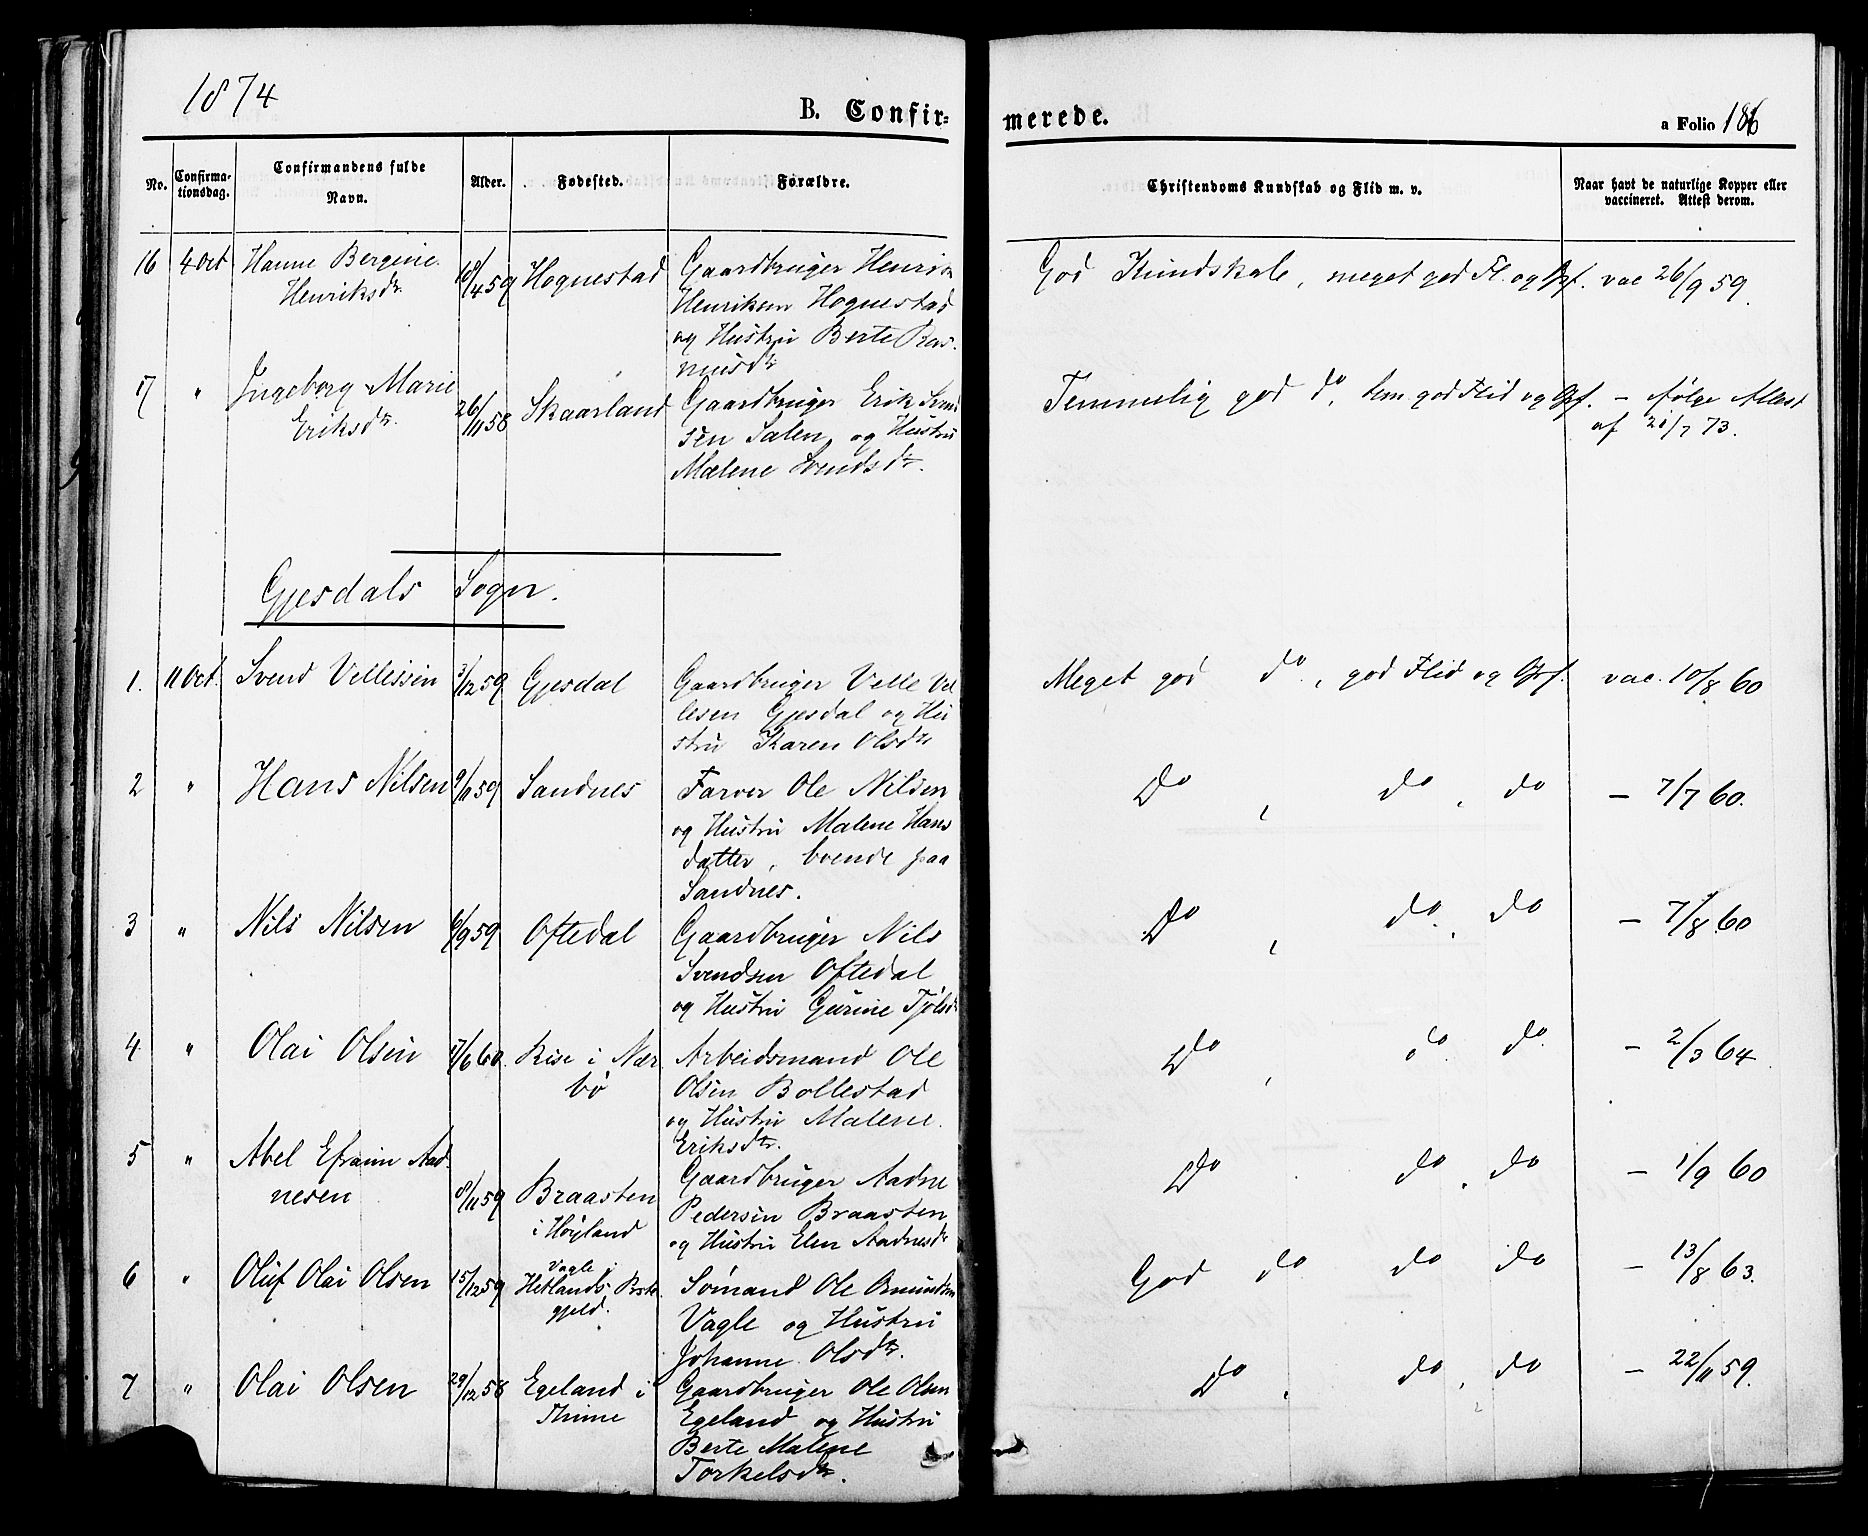 1874
B. Confir=
merede.
a Folio 186
No.
Confirma-
tionsdag.
Confirmandens fulde
Navn.
Alder.
Fødested.
Forældre.
Christendoms Kundskab og Flid m. v.
Naar havt de naturlige Kopper eller
vaccineret. Attest derom.
16 4 Oct Hanne Bergine 18/4 59 Hognestad Gaardbruger Henrik God Kundskab, meget god Fl. og Opf. vac 26/9 59.
Henriksdtr. Henriksen Hognestad
og Hustru Berte Ras-
musdtr
17 " Ingeborg Marie 26/11 58 Skaarland Gaardbruger Erik Svend Temmelig god do, tem. god Flid og Opf. - følge Attest
Eriksdtr. sen Salen og Hustru af 21/7 73.
Malene Svendsdtr.
Gjesdals Sogn.
1. 11 Oct. Svend Vellesen 3/12 59 Gjesdal Gaardbruger Velle Vel Meget god do, god Flid og Opf. vac. 10/8 60
lesen Gjesdal og Hu
stru Karen Olsdtr
2 " Hans Nilsen 9/11 59 Sandnes Farver Ole Nilsen Do, do, do - 7/7 60.
og Hustru Malene Hans
datter, boende paa
Sandnes.
3 " Nils Nilsen 6/9 59 Oftedal Gaardbruger Nils Do, do, do - 7/8 60
Svendsen Oftedal
og Hustru Gurine Tjølsdr
4 " Olai Olsen 17/6 60. Rise i Nær Arbeidsmand Ole Do, do. do. - 2/3 64
bø Olsen Bollestad
og Hustru Malene
Eriksdtr.
5 " Abel Efraim Aad- 8/11 59 Braasten Gaardbruger Aadne Do do. do - 1/9 60
nesen i Høyland Pedersen Braasten
og Hustru Elen Aadnesdr
6 " Oluf Olai Olsen 15/12 59 Vagle i Sømand Ole Asmundsen God do do do - 13/8 63.
Hetlands Præste
gjeld. Vagle og Hustru
Johanne Olsdtr.
7 " Olai Olsen 29/12 58 Egeland i Gaardbruger Ole Olsen Do, do, do - 22/11 59.
Thime Egeland og Hustru
Berte Malene
Torkelsdtr.